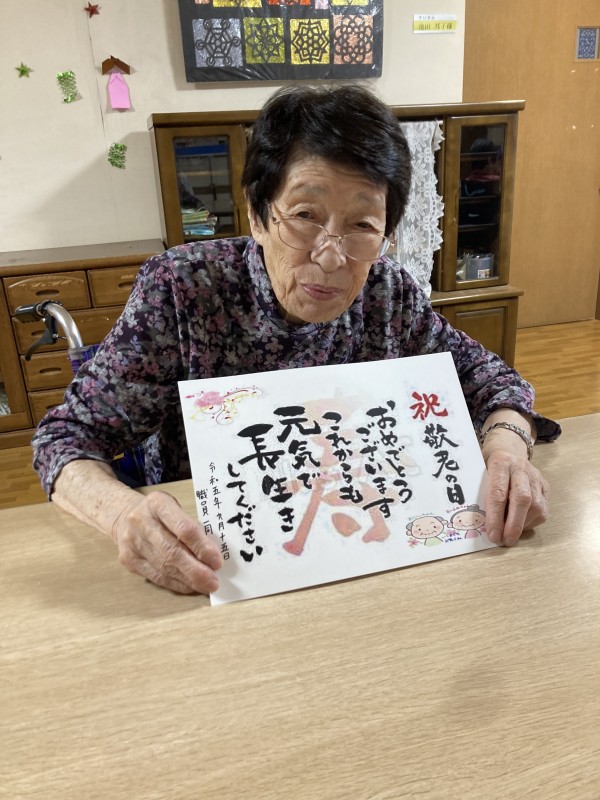 祝 敬老の日
おめでとう
ございます
これからも
元気で
長生き
してください
令和五年九月十五日
職員一同
寿